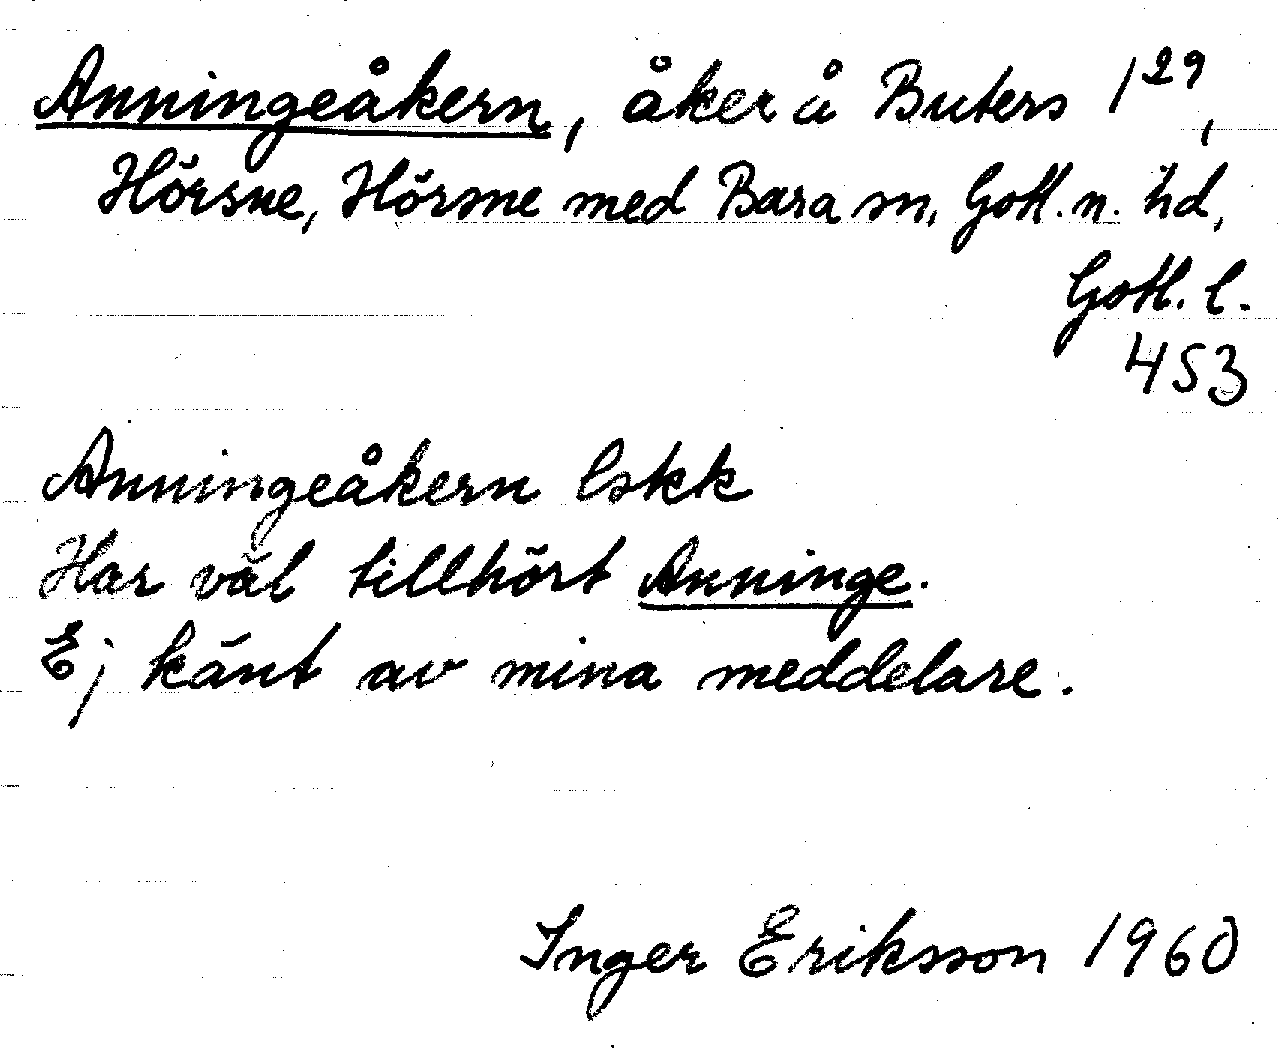 Anningeåkern, åker å Buters 1²⁹,
Hörsne, Hörsne med Bara sn, Gotl. n. hd,
Gotl. l.
453
Anningeåkern lskk
Har väl tillhört Anninge.
Ej känt av mina meddelare.
Inger Eriksson 1960